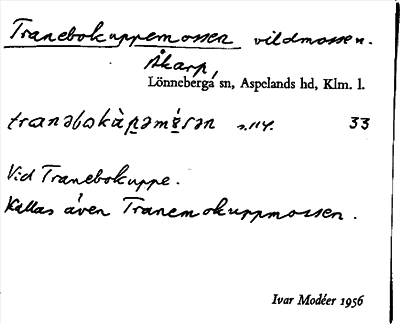 Tranebokuppemossen vildmossen.
Åkarp,
Lönneberga sn, Aspelands hd, Klm. l.
s. 114. 33
Vid Tranebokuppe.
Kallas även Tranemokuppmossen.
Ivar Modéer 1956